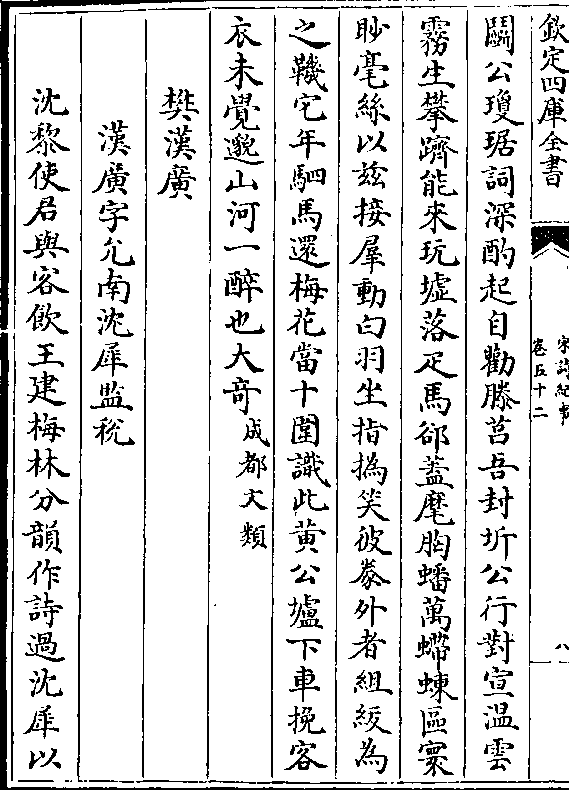 欽定四庫全書
宋詩紀事
卷五十二
八
鬭公瓊琚詞深酌起自勸滕莒吾封圻公行對宣温雲
霧生攀躋能來玩墟落疋馬郤葢麾胸蟠萬螮蝀區寰
眇毫絲以兹接羣動白羽坐指撝笑彼豢外者組紱為
之鞿它年駟馬還梅花當十圍識此黄公壚下車挽客
衣未覺邈山河一醉也大竒成都文類
樊漢廣
漢廣字允南沈犀監税
沈黎使君與客飲王建梅林分韻作詩過沈犀以